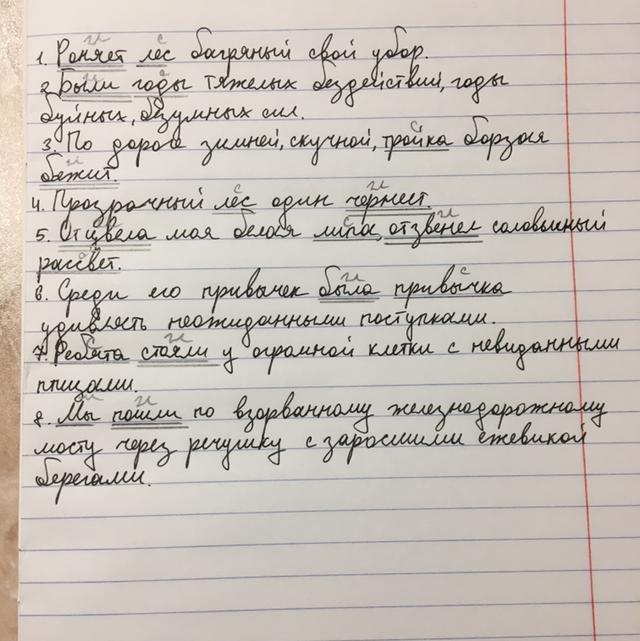 1. Роняет лес багряный свой убор.
2. Были годы тяжелых бездействий, годы
буйных, безумных сил.
3. По дороге зимней, скучной, тройка борзая
бежит.
4. Прозрачный лес один чернеет.
5. Отцвела моя белая липа, отзвенел соловьиный
рассвет.
6. Среди его привычек была привычка
удивлять неожиданными поступками.
7. Ребята стояли у огромной клетки с невиданными
птицами.
8. Мы пошли по взорванному железнодорожному
мосту через речушку с заросшими ежевикой
берегами.